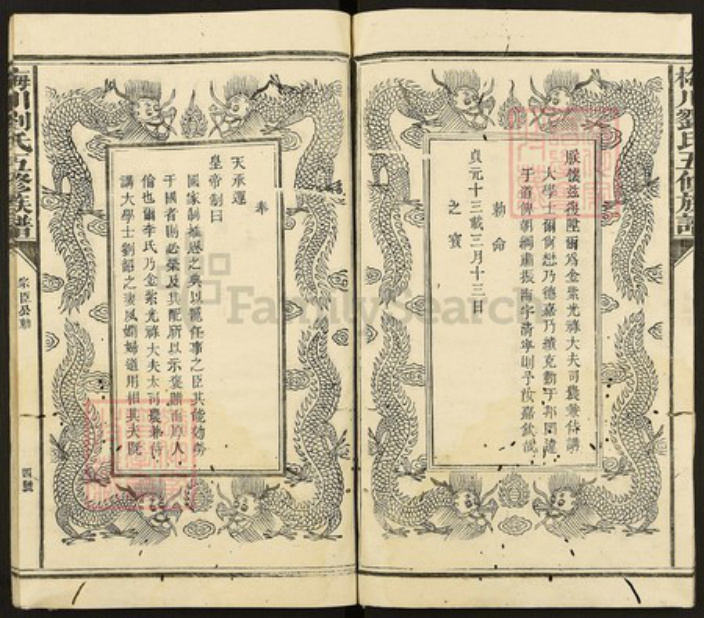 梅川劉氏五修族譜
朕懷茲
爾爲金紫光祿大夫司農兼侍講
大學士爾尚懋乃德嘉乃績克勤于邦罔違
于道俾朝綱肅振海宇清寧則予汝嘉欽哉
勅命
貞元十三載三月十三日
之寶
奉
天承運
皇帝制曰
國家制推恩之典以寵任事之臣其能勤勞
于國者則必榮及其配所以示褒
人
倫也爾李氏乃金紫光祿大夫太司農兼侍
講大學士劉
之妻夙嫻婦道用相其夫
梅川劉氏五修族譜
四號
FamilySearch